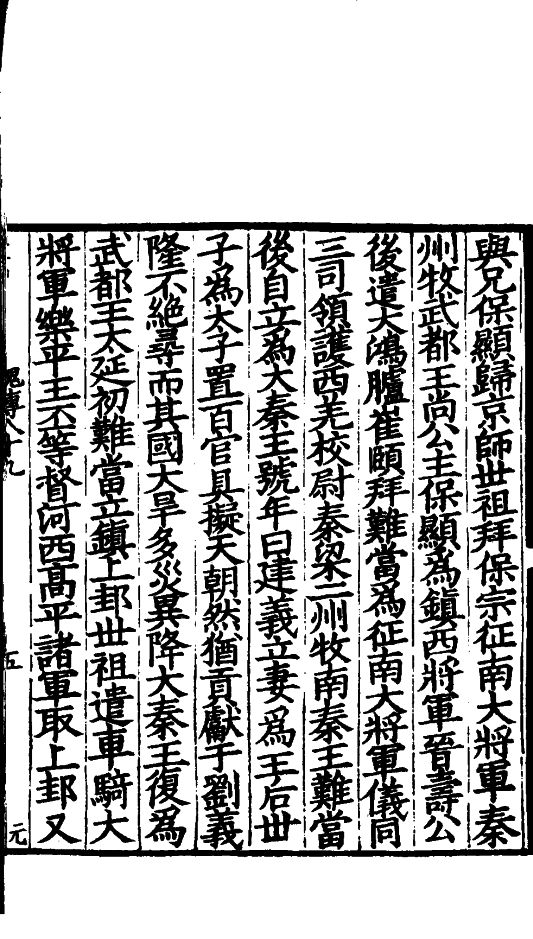 與兄保顯歸京師世祖拜保宗征南大將軍秦
州牧武都王尚公主保顯爲鎮西將軍晉壽公
後遣大鴻臚崔賾拜難當爲征南大將軍儀同
三司領護西羌校尉秦梁二州牧南秦王難當
後自立爲大秦王號年曰建義立妻爲王后世
子爲太子置百官具擬天朝然猶貢獻于劉義
隆不絶尋而其國大旱多災異降大秦王復爲
武都王太延初難當立鎮上邽世祖遣車騎大
將軍樂平王丕等督河西高平諸軍取上邽又
魏傳八十九
五
元